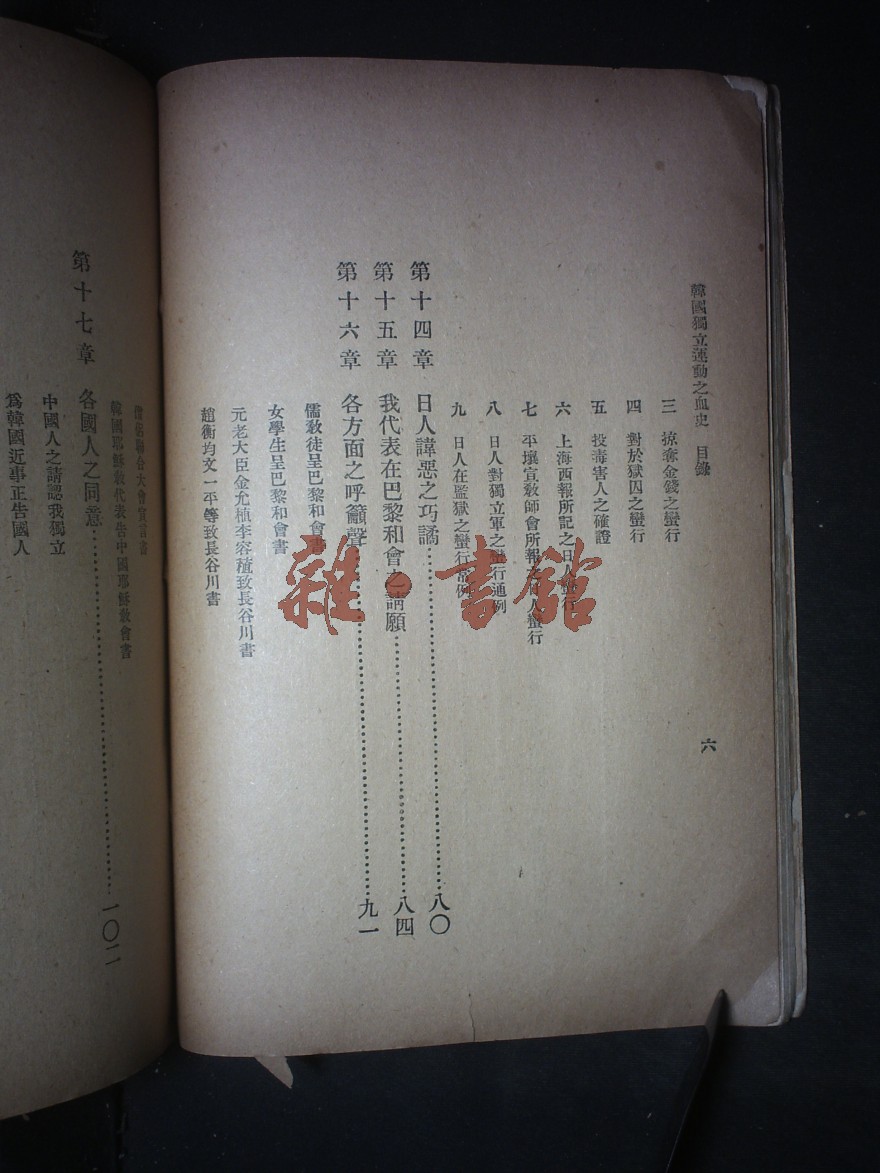 韓國獨立運動之血史　目錄
六
三　掠奪金錢之蠻行
四　對於獄囚之蠻行
五　投毒害人之確證
六　上海西報所記之日人蠻行
七　平壤宣敎師會所報之日人蠻行
八　日人對獨立軍之蠻行通例
九　日人在監獄之蠻行常例
第十四章　日人諱惡之巧譎……八〇
第十五章　我代表在巴黎和會之請願……八四
第十六章　各方面之呼籲聲……九一
儒敎徒呈巴黎和會書
女學生呈巴黎和會書
元老大臣金允植李容稙致長谷川書
趙衡均文一平等致長谷川書
僧侶聯合大會宣言書
韓國耶穌敎代表告中國耶穌敎會書
第十七章　各國人之同意……一〇二
中國人之請認我獨立
爲韓國近事正告國人
雜·書館